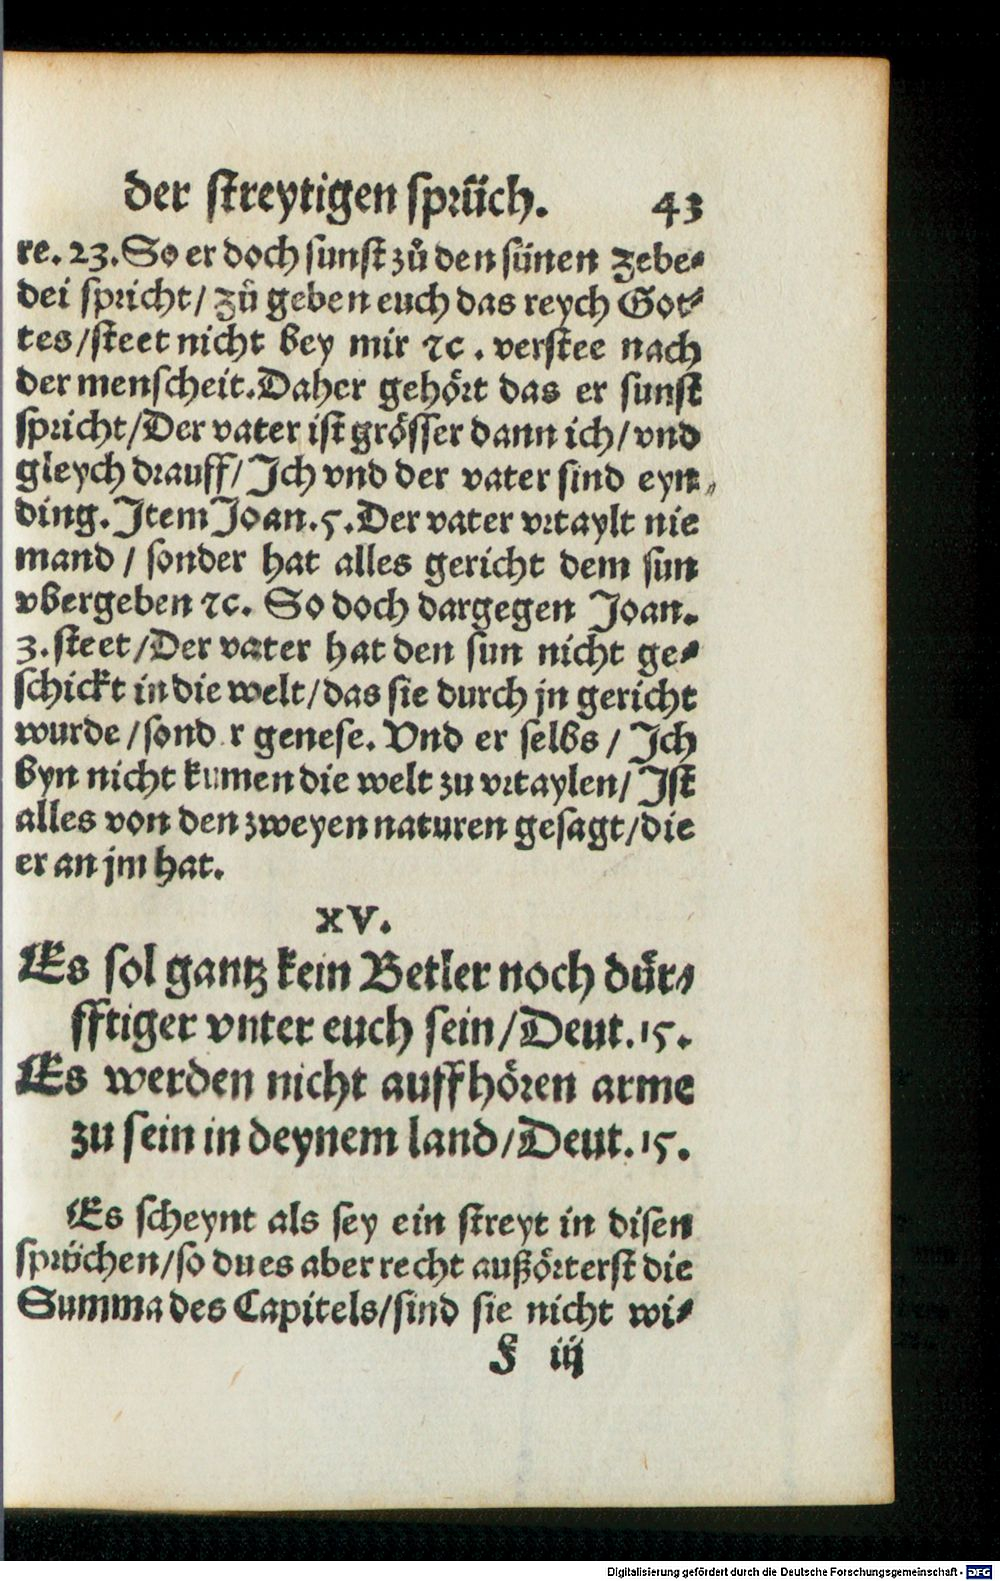 der streytigen sprüch. 43
re. 23. So er doch sunst zů den sünen Zebe⸗
dei spricht / Zů geben euch das reych Got⸗
tes / steet nicht bey mir ⁊c. verstee nach
der menscheit. Daher gehört das er sunst
spricht / Der vater ist grösser dann ich / vnd
gleych drauff / Ich vnd der vater sind eyn⸗
ding. Item Joan. 5. Der vater vrtaylt nie
mand / sonder hat alles gericht dem sun
vbergeben ⁊c. So doch dargegen Joan.
3. steet / Der vater hat den sun nicht ge⸗
schickt in die welt / das sie durch jn gericht
wurde / sond r genese. Vnd er selbs / Ich
byn nicht kumen die welt zu vrtaylen / Ist
alles von den zweyen naturen gesagt / die
er an jm hat.
XV.
Es sol gantz kein Betler noch dür⸗
fftiger vnter euch sein / Deut. 15.
Es werden nicht auffhören arme
zu sein in deynem land / Deut. 15.
Es scheynt als sey ein streyt in disen
sprüchen / so du es aber recht außörterst die
Summa des Capitels / sind sie nicht wi⸗
F iij
Digitalisierung gefördert durch die Deutsche Forschungsgemeinschaft - DFG